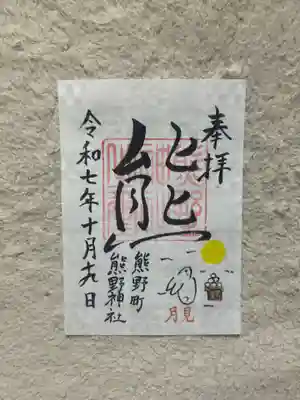 奉拝
熊
月見
熊野町
熊野神社
令和七年十月十九日